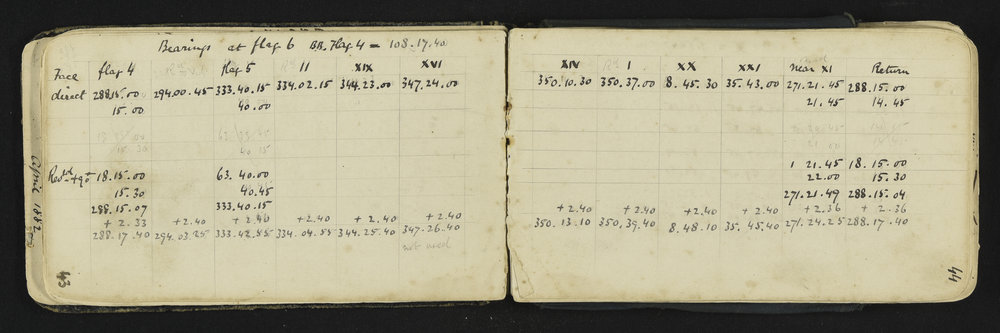 Bearings at flag 6 BR. Flag 4 = 108.17.40
Face flag 4 flag 5 II XIX XVI
direct 288.15.00 294.00.45 333.40.15 334.02.15 344.23.00 347.24.00
15.00 40.00
18.15.00 63. 40.00
15.30 40.45
288.15.07 333.40.15
+ 2.33 +2.40 + 2.40 +2.40 + 2.40 + 2.40
288.17.40 294.03.25 333.42.55 334.04.55 344.25.40 347.26.40
not used
April 1882
43
XIV I XX XXI near XI Return
350.10.30 350.37.00 8.45.30 35.43.00 271.21.45 288.15.00
21.45 14.45
1 21.45 18.15.00
22.00 15.30
271.21.49 288.15.04
+2.40 +2.40 +2.40 +2.40 +2.36 + 2.36
350.13.10 350.39.40 8.48.10 35.45.40 271.24.25 288.17.40
44